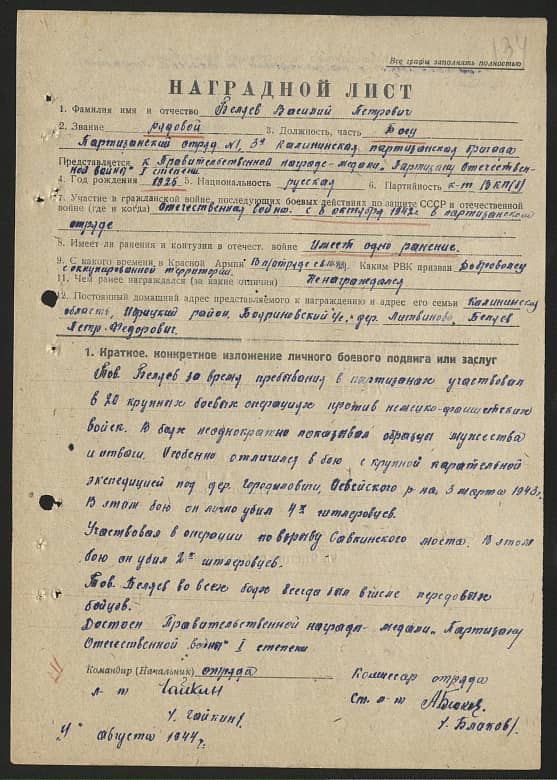 134
Все графы заполнять полностью
НАГРАДНОЙ ЛИСТ
1. Фамилия имя и отчество Беляев Василий Петрович
2. Звание рядовой 3. Должность, часть Боец
Партизанский отряд №1, 3я Калининская партизанская бригада
Представляется к Правительственной награде - медали „Партизану Отечествен-
ной войны" I степени
4. Год рождения 1925 5. Национальность русская 6. Партийность к-т ВКП(б)
7. Участие в гражданской войне, последующих боевых действиях по защите СССР и отечественной
войне (где и когда) Отечественная война. с 8 октября 1942г. в партизанском
отряде
8. Имеет ли ранения и контузии в отечест. войне Имеет одно ранение.
9. С какого времени в Красной Армии В п/отряде с Каким РВК призван Доброволец
с оккупированной территории.
11. Чем ранее награждался (за какие отличия) Ненаграждался
12. Постоянный домашний адрес представляемого к награждению и адрес его семьи Калининская
область, Идрицкий район, дер. Литвиново, Беляев
Петр Федорович.
1. Краткое, конкретное изложение личного боевого подвига или заслуг
Тов. Беляев за время пребывания в партизанах участвовал
в 20 крупных боевых операциях против немецко-фашистских
войск. В боях неоднократно показывал образцы мужества
и отваги. Особенно отличился в бою с крупной карательной
экспедицией под дер. Освейского р-на, 3 марта 1943г.
В этом бою он лично убил 4х гитлеровцев.
Участвовал в операции по взрыву Савкинского моста. В этом
бою он убил 2х гитлеровцев.
Тов. Беляев во всех боях всегда был в числе передовых
бойцов.
Достоен Правительственной награды - медали „Партизану
Отечественной войны" I степени
Командир (Начальник) отряда
Комиссар отряда
л-т Чайкин
Ст. л-т
/. Чайкин/.
/. Блаков/.
„4" августа 1944г.